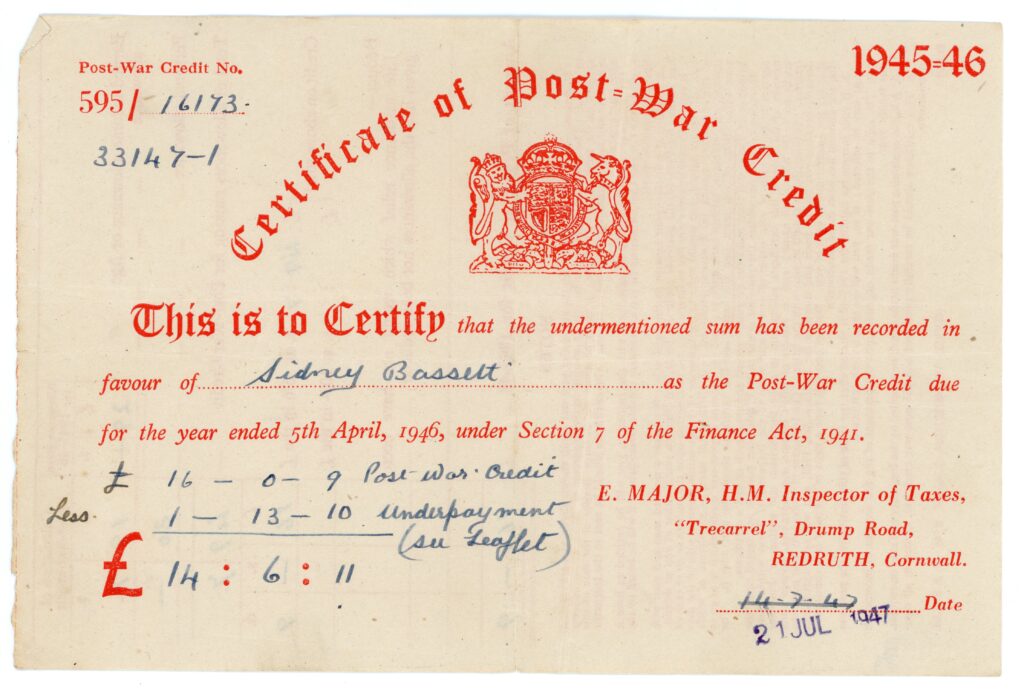 Post-War Credit No.
595/ 16173.
33147-1
1945-46
Certificate of Post-War Credit
This is to Certify that the undermentioned sum has been recorded in
favour of Sidney Bassett as the Post-War Credit due
for the year ended 5th April, 1946, under Section 7 of the Finance Act, 1941.
£ 16 - 0 - 9 Post-War Credit
Less. 1 - 13 - 10 Underpayment
(see Leaflet)
£ 14 : 6 : 11
E. MAJOR, H.M. Inspector of Taxes,
"Trecarrel", Drump Road,
REDRUTH, Cornwall.
14-7-47 Date
21 JUL 1947